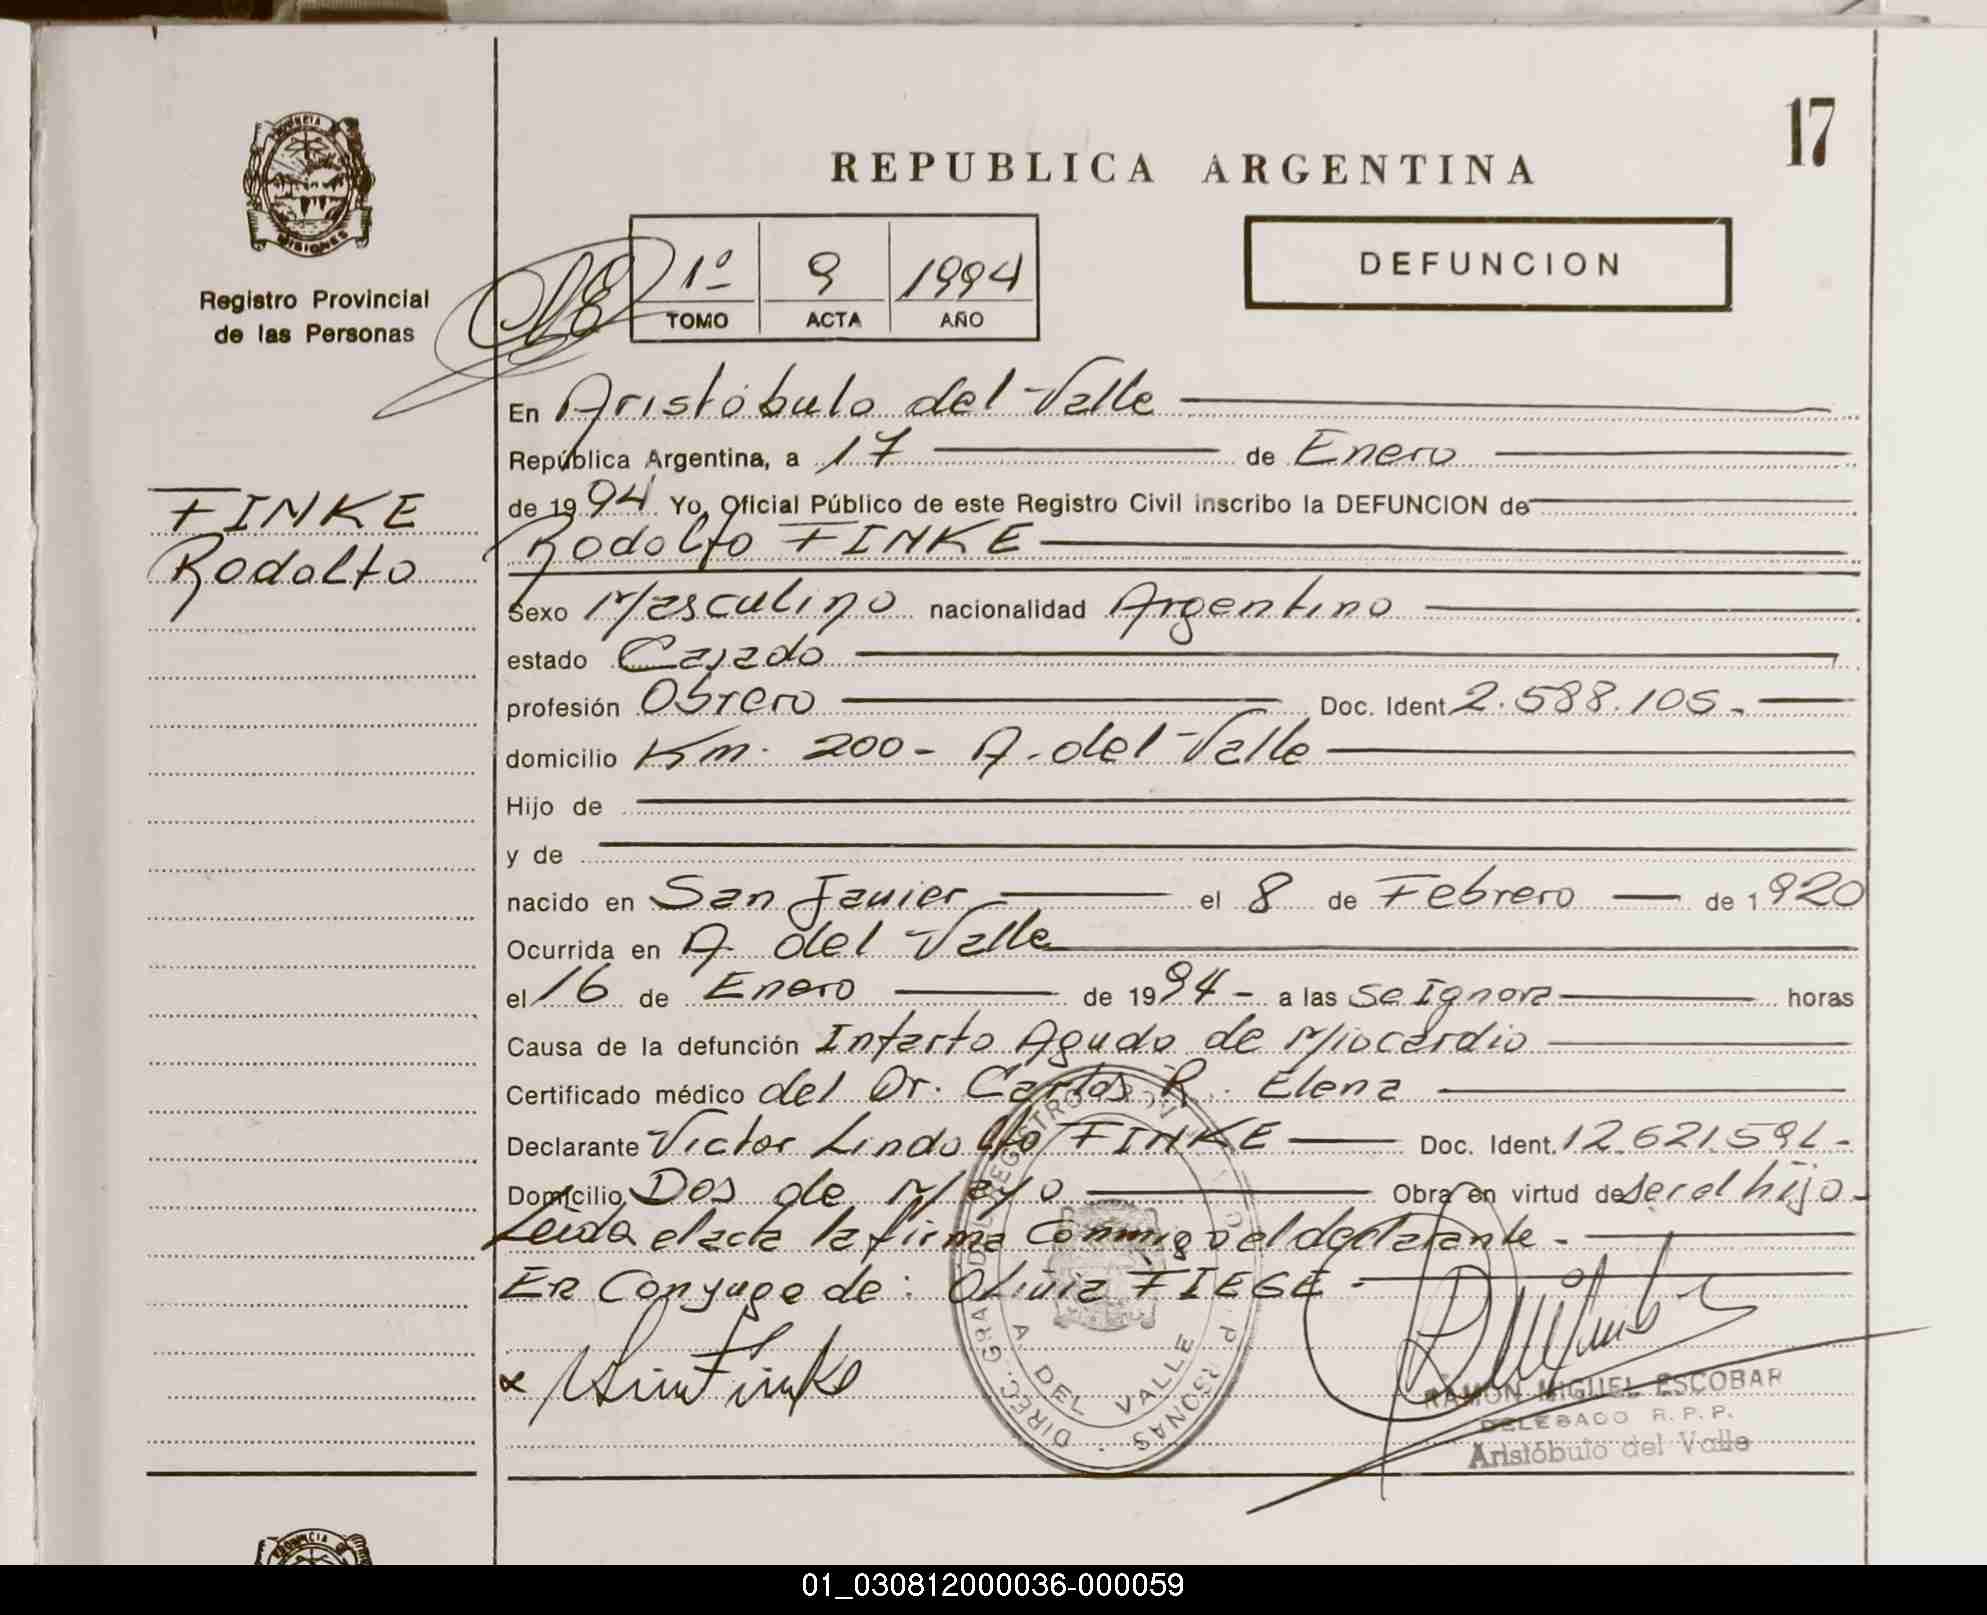 17
REPUBLICA ARGENTINA
PROVINCIA
MISIONES
Registro Provincial
de las Personas
1º 9 1994
TOMO ACTA AÑO
DEFUNCION
FINKE
Rodolfo
En Aristóbulo del Valle
República Argentina, a 17 de Enero
de 1994 Yo, Oficial Público de este Registro Civil inscribo la DEFUNCION de
Rodolfo FINKE
Sexo Masculino nacionalidad Argentino
estado Casado
profesión Obrero Doc. Ident. 2.588.105.-
domicilio Km. 200 - A. del Valle
Hijo de
y de
nacido en San Javier el 8 de Febrero de 1920
Ocurrida en A. del Valle
el 16 de Enero de 1994 - a las se ignora horas
Causa de la defunción Infarto Agudo de Miocardio
Certificado médico del Dr. Carlos R. Elena
Declarante Victor Lindolfo FINKE Doc. Ident. 12.621.591-
Domicilio Dos de Mayo Obra en virtud de ser el hijo-
Leida el acta la firma Conmigo el declarante -
Er Conyuge de: Olivia FIEGE -
A DEL VALLE
RAMON MIGUEL ESCOBAR
DELEGADO R.P.P.
Aristóbulo del Valle
01_030812000036-000059